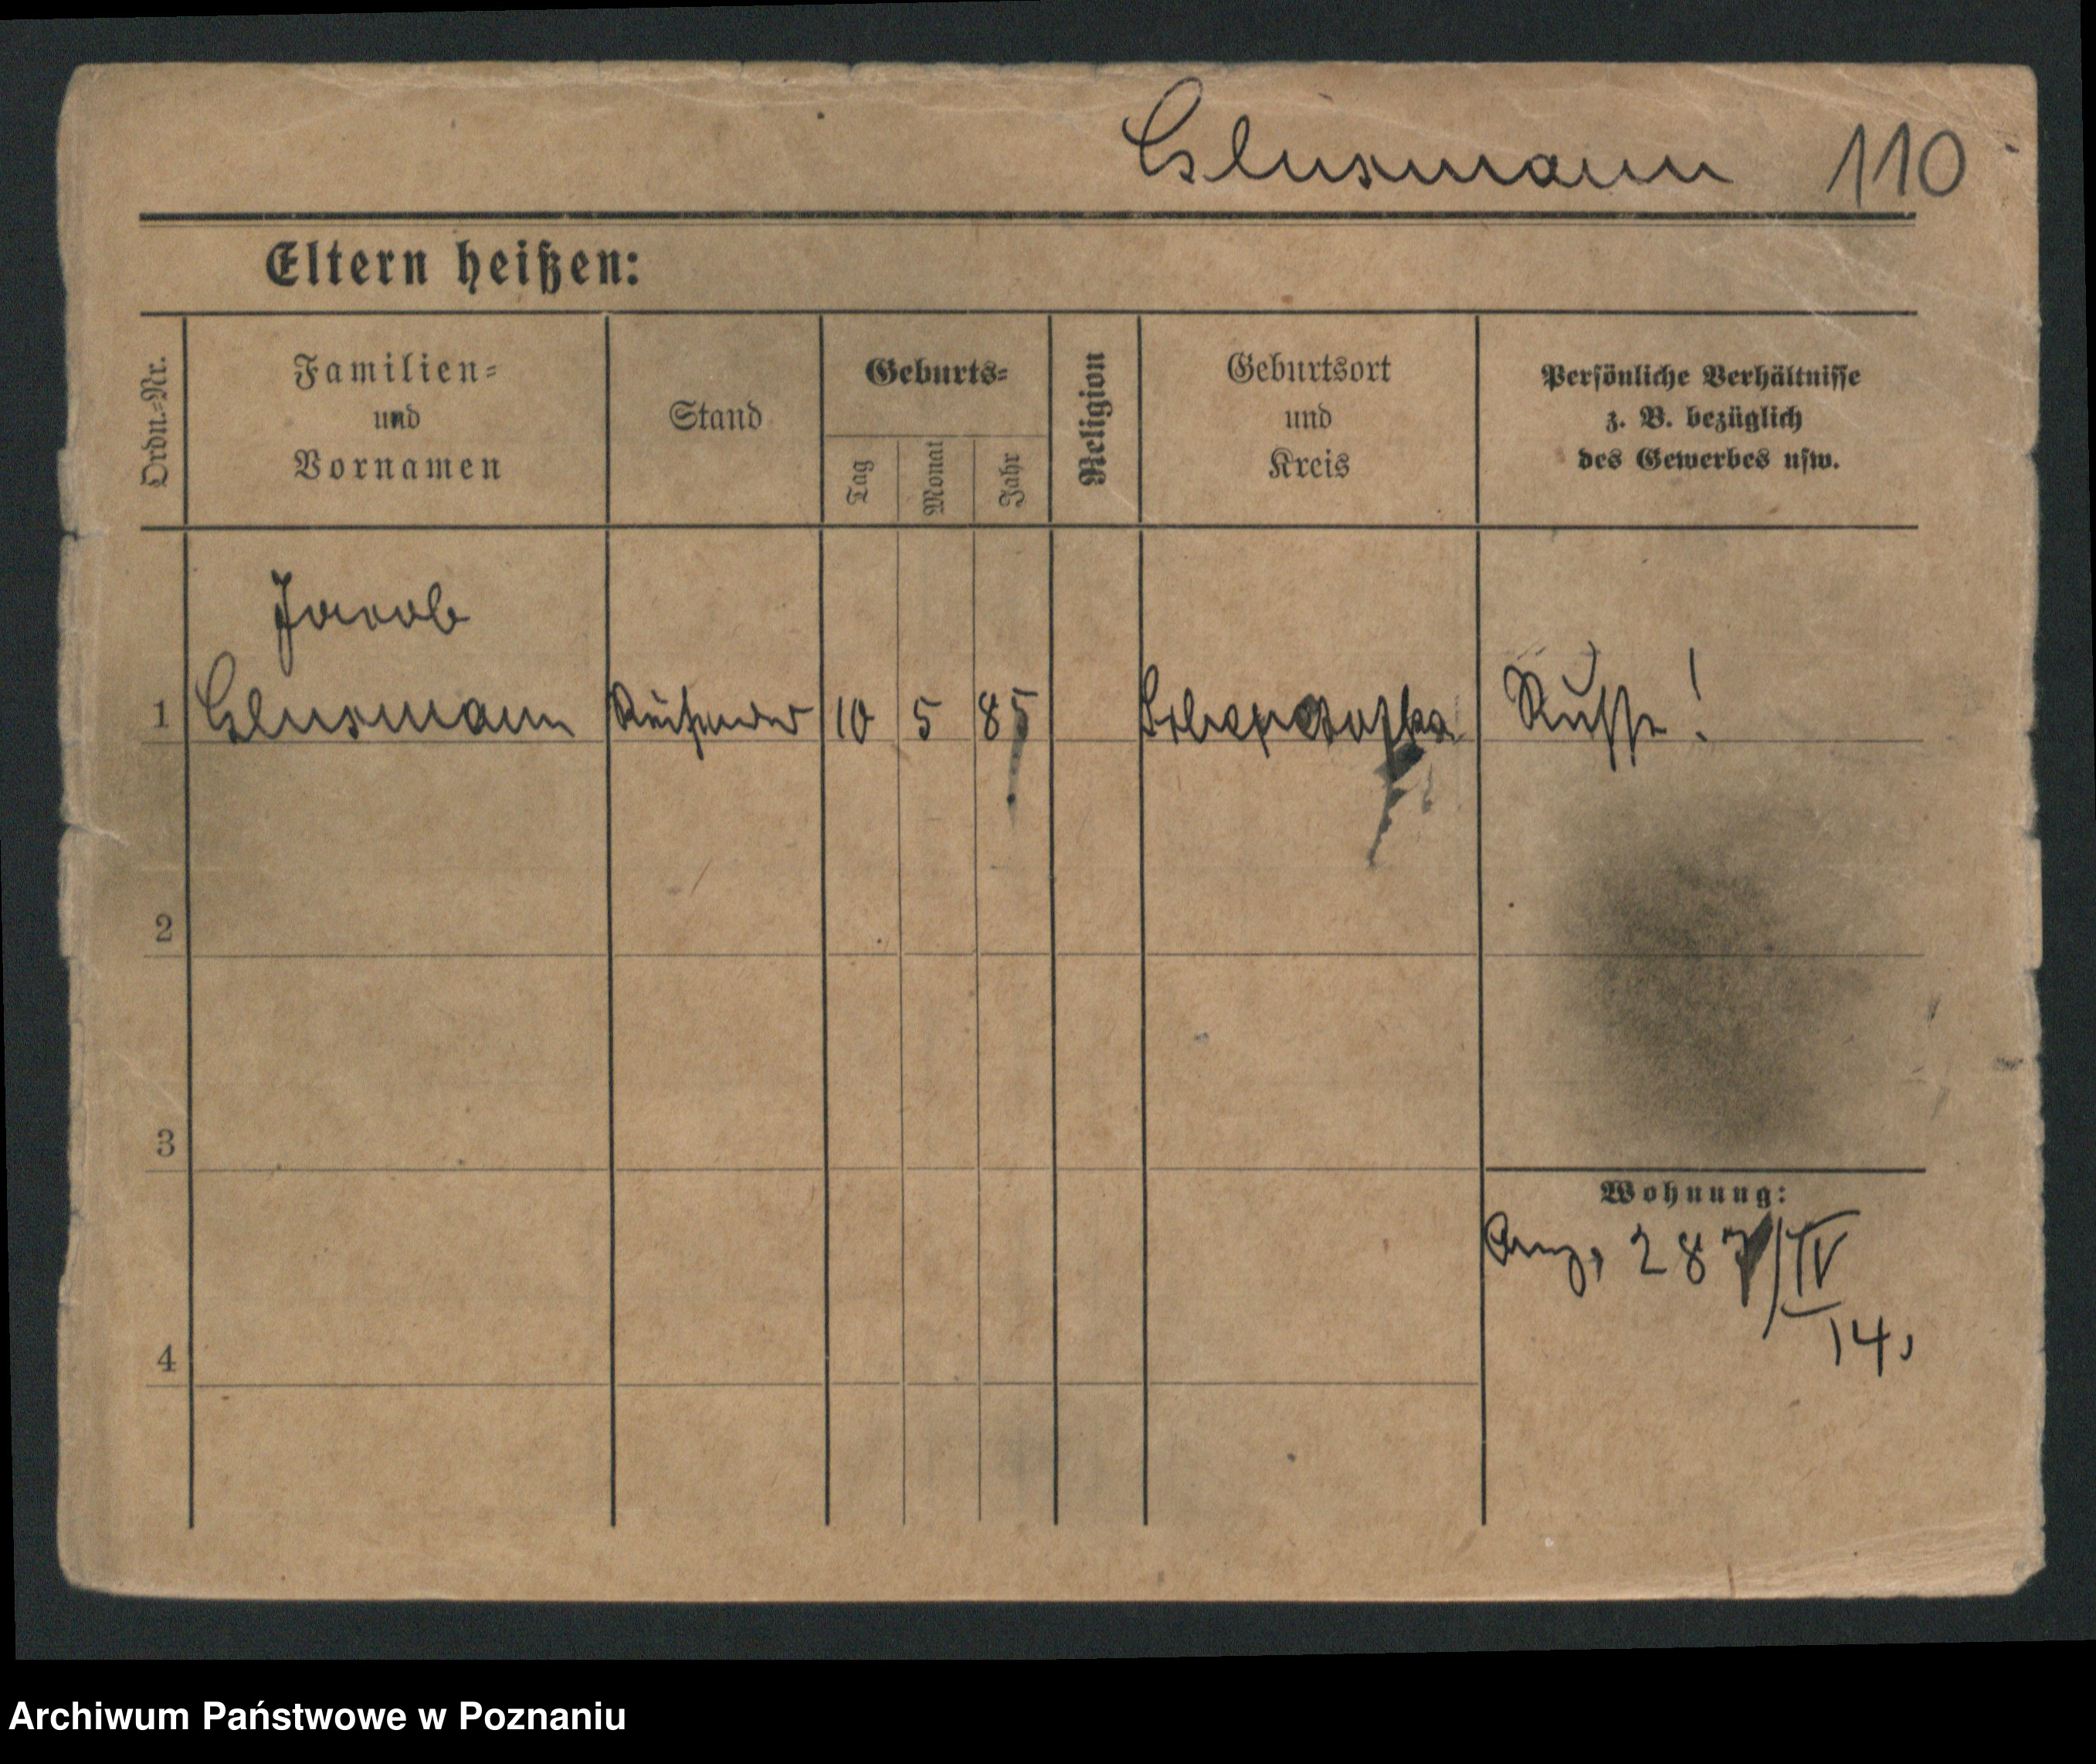 Glusmann 110
Eltern heißen:
Ordn.-Nr.
Familien-
und
Vornamen
Stand
Geburts-
Tag
Monat
Jahr
Religion
Geburtsort
und
Kreis
Persönliche Verhältnisse
z. B. bezüglich
des Gewerbes usw.
Jacob
1 Glusmann Reisender 10 5 85 Russe!
2
3
Wohnung:
287/IV
14.
4
Archiwum Państwowe w Poznaniu